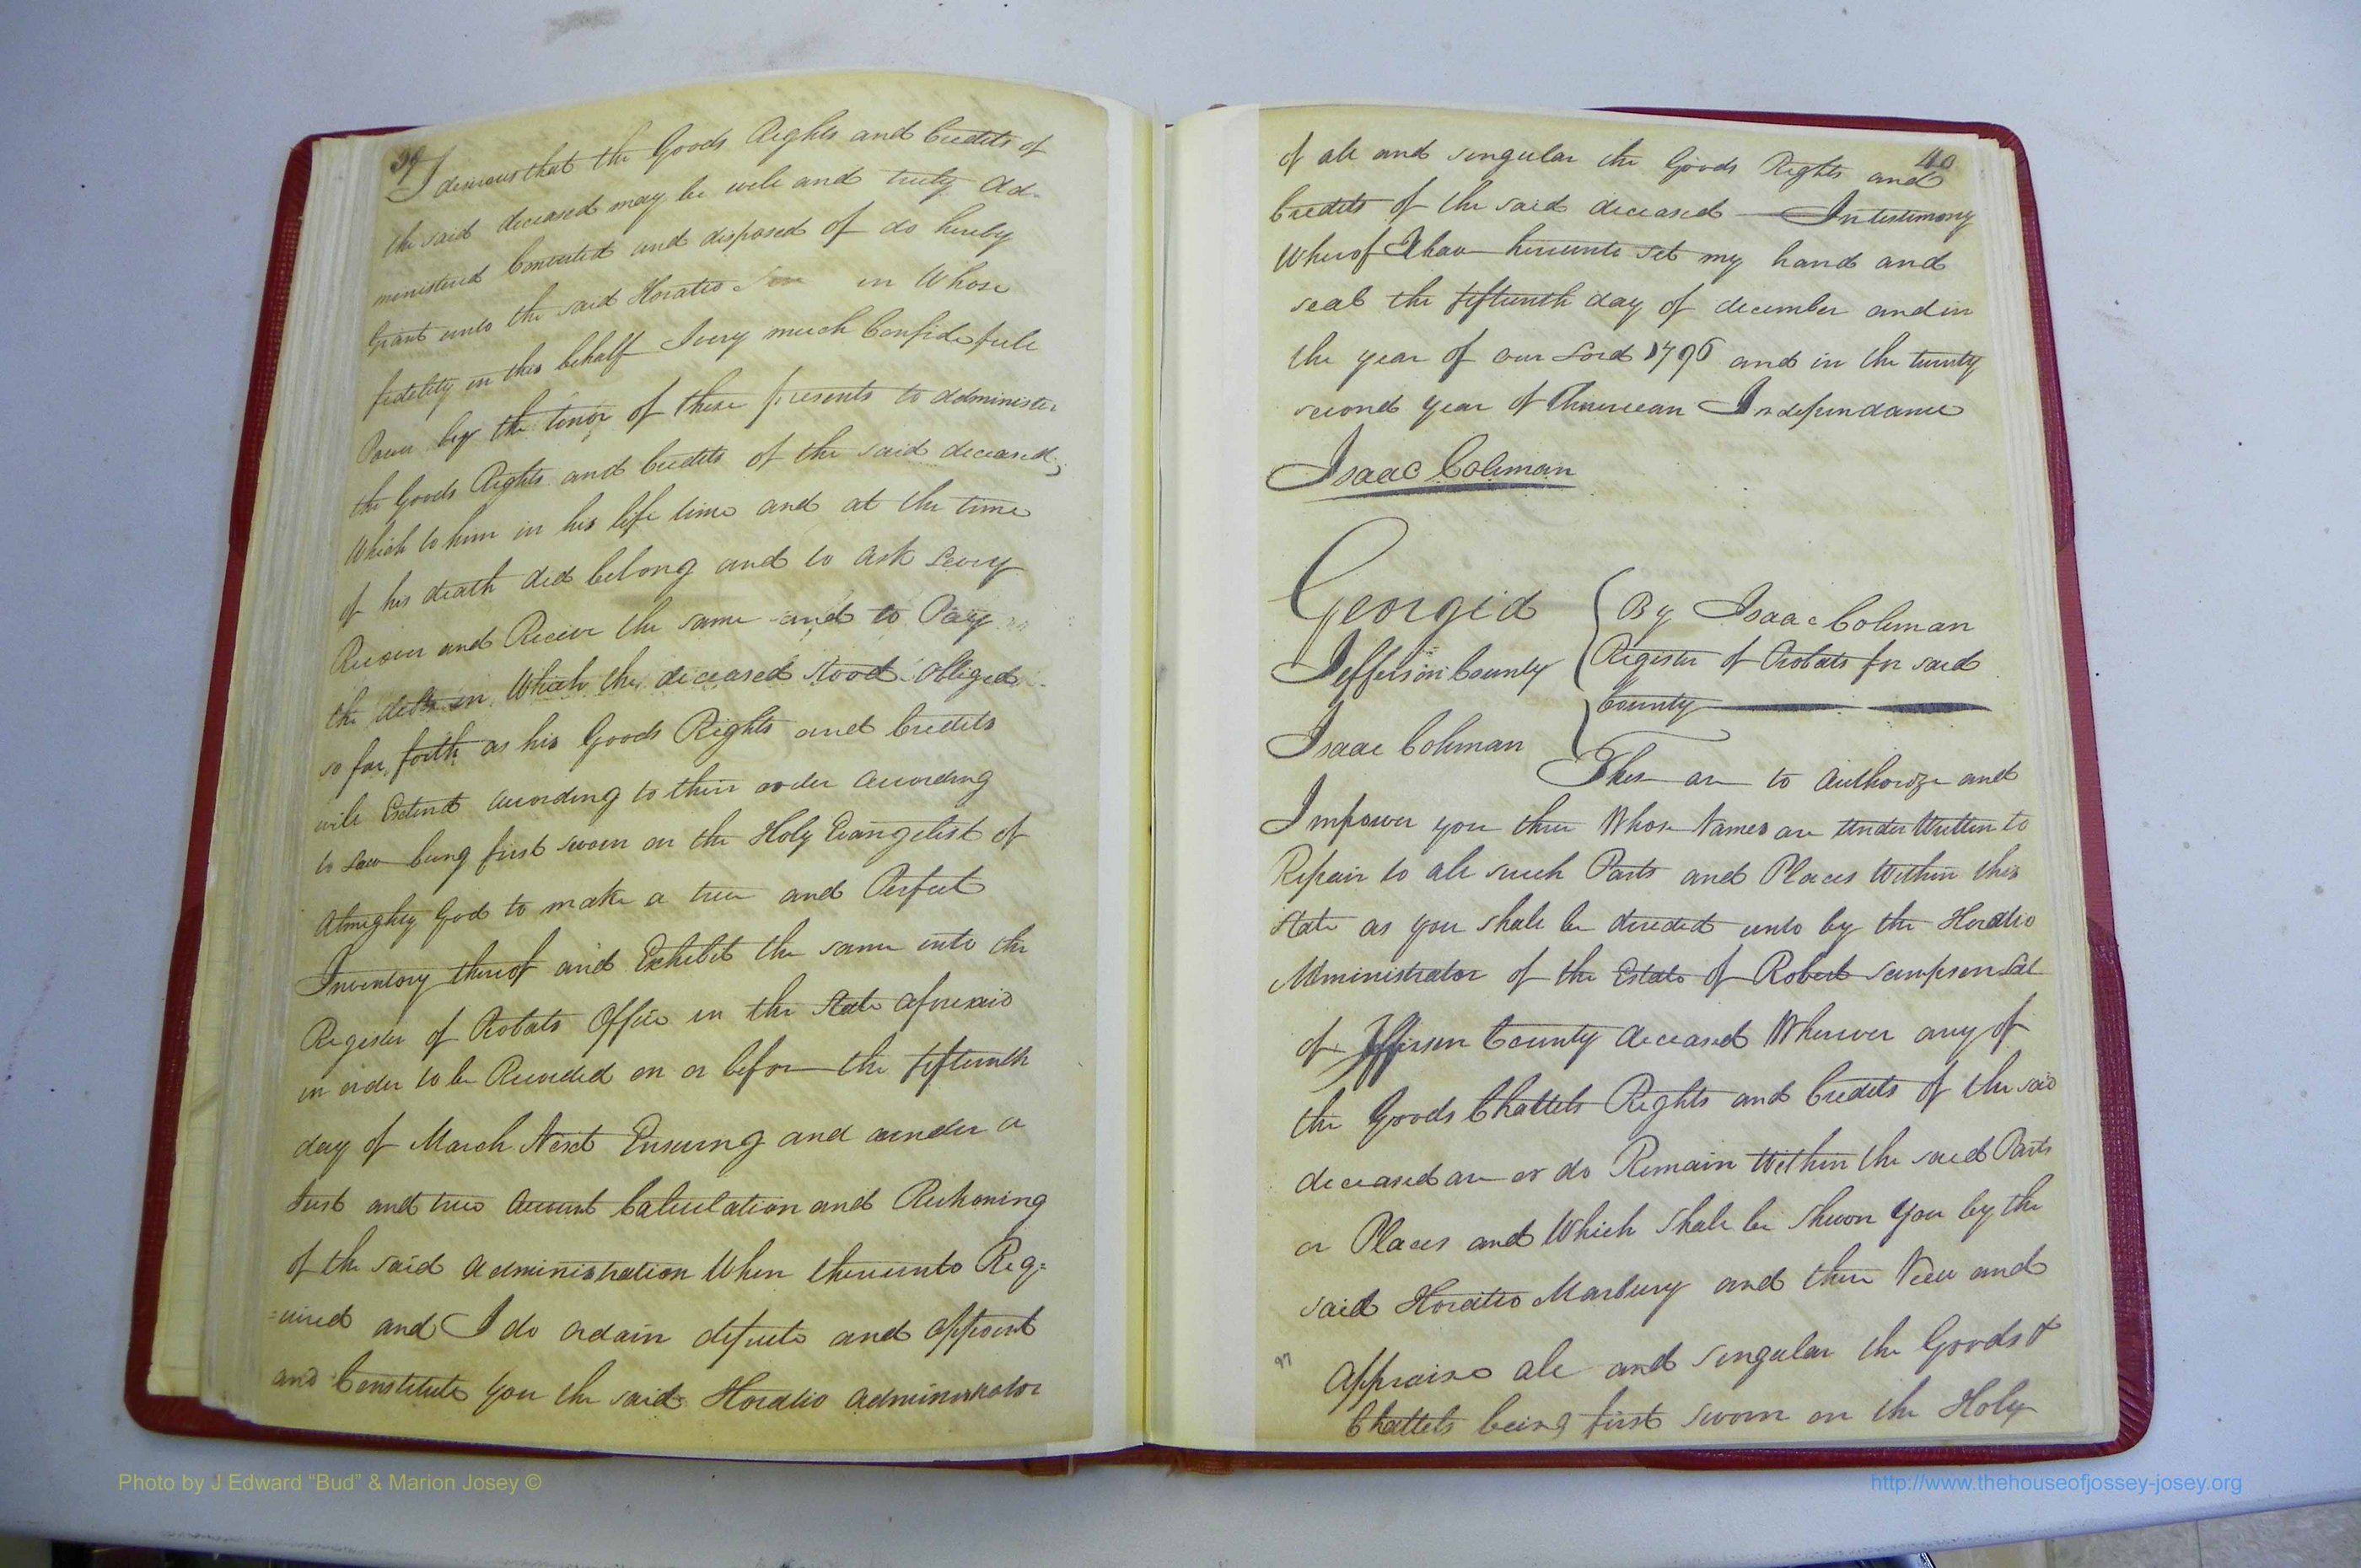 39
I desirous that the Goods Rights and Credits of
the said deceased may be well and truly Ad-
ministered Converted and disposed of do hereby
Grant unto the said Horatio in Whose
fidelity in this behalf I very much Confide full
Power by the tenor of these presents to administer
the Goods Rights and Credits of the said deceased,
Which to him in his life time and at the time
of his death did belong and to ask Levey
Recover and Receive the same and to Pay
the debts in Which the deceased stood Obliged
so far forth as his Goods Rights and Credits
will Extend according to their order according
to Law being first sworn on the Holy Evangelist of
Almighty God to make a true and Perfect
Inventory thereof and Exhibit the same into the
Register of Probats Office in the State aforesaid
in order to be Recorded on or before the fifteenth
day of March Next Ensuing and render a
Just and true Account Calculation and Reckoning
of the said Administration When thereunto Req=
=uired and I do ordain depute and appoint
and Constitute you the said Horatio Administrator
40
of all and singular the Goods Rights and
Credits of the said deceased — In testimony
Wherof I have hereunto set my hand and
seal the fifteenth day of december and in
the year of our Lord 1796 and in the twenty
second year of American Independance
Isaac Coleman
Georgia
Jefferson County
Isaac Coleman
By Isaac Coleman
Register of Probats for said
County
These are to Authorize and
Impower you three Whose Names are Under Written to
Repair to all such Parts and Places Within this
State as you shall be directed unto by the Horatio
Administrator of the Estate of Robert Sampson Lat
of Jefferson County deceased Wherever any of
the Goods Chattels Rights and Credits of the said
deceased are or do Remain Within the said Parts
or Places and Which shall be shewn you by the
said Horatio Marbury and there View and
97
Appraise all and singular the Goods &
Chattels being first sworn on the Holy
Photo by J Edward “Bud” & Marion Josey ©
http://www.thehouseofjossey-josey.org